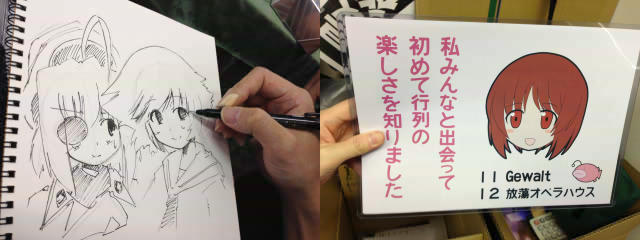 私みんなと出会って
初めて行列の
楽しさを知りました
11 Gewalt
12 放蕩オペラハウス